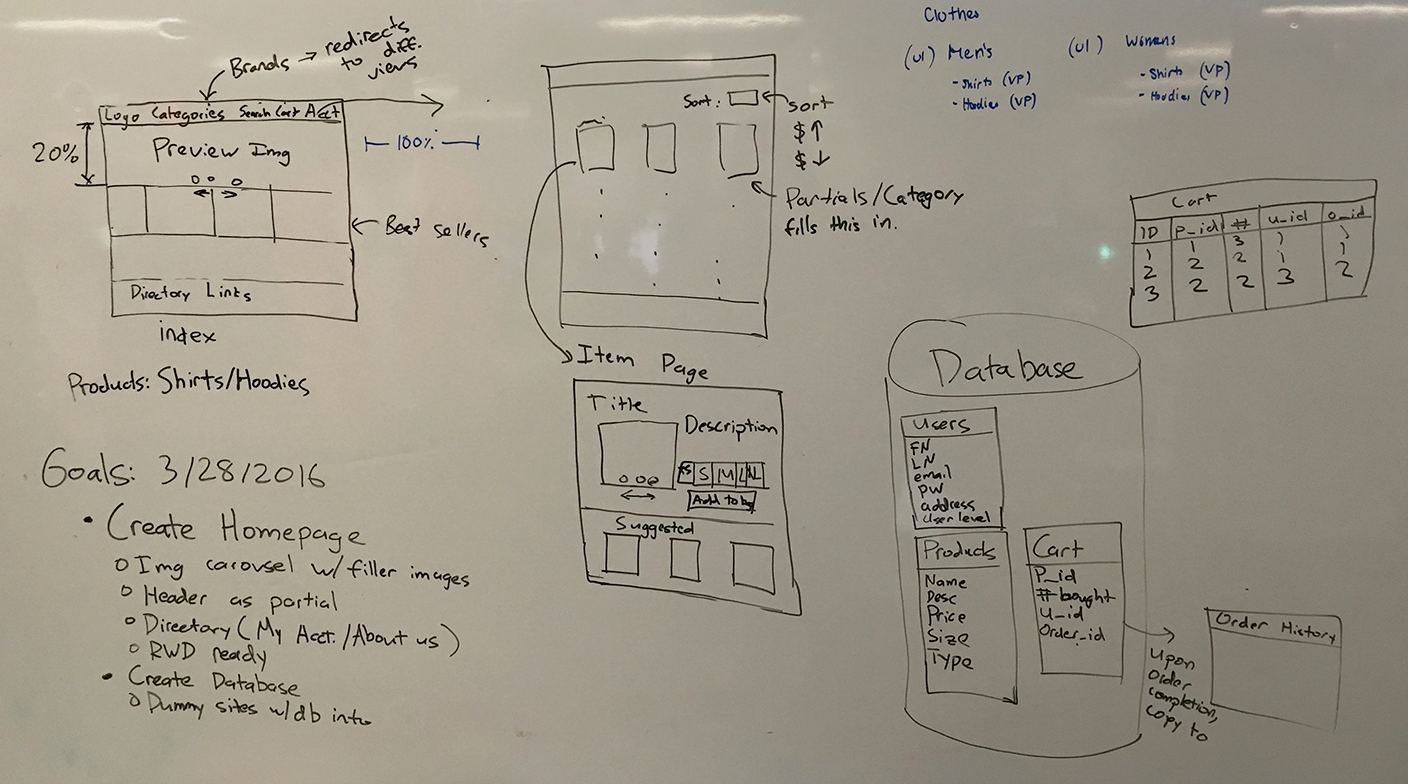 Brands → redirects
to diff.
views
Logo Categories Search Cart Acct
20%
Preview Img
100%
Best sellers
Directory Links
index
Products: Shirts/Hoodies
Goals: 3/28/2016
• Create Homepage
o Img carousel w/ filler images
o Header as partial
o Directory (My Acct./About us)
o RWD ready
• Create Database
o Dummy sites w/db info
Sort:
sort
$↑
$↓
Partials/Category
fills this in.
Item Page
Title
Description
XS S M L XL
Add to bag
Suggested
Clothes
(ul) Men's
- Shirts (VP)
- Hoodies (VP)
(ul) Womens
- Shirts (VP)
- Hoodies (VP)
Cart
ID p_id # u_id o_id
1 1 3 1 1
2 2 2 1 1
3 2 2 3 2
Database
Users
FN
LN
email
PW
address
User level
Products
Name
Desc
Price
Size
Type
Cart
P_id
# bought
u_id
Order_id
Upon
Order
completion,
copy to
Order History